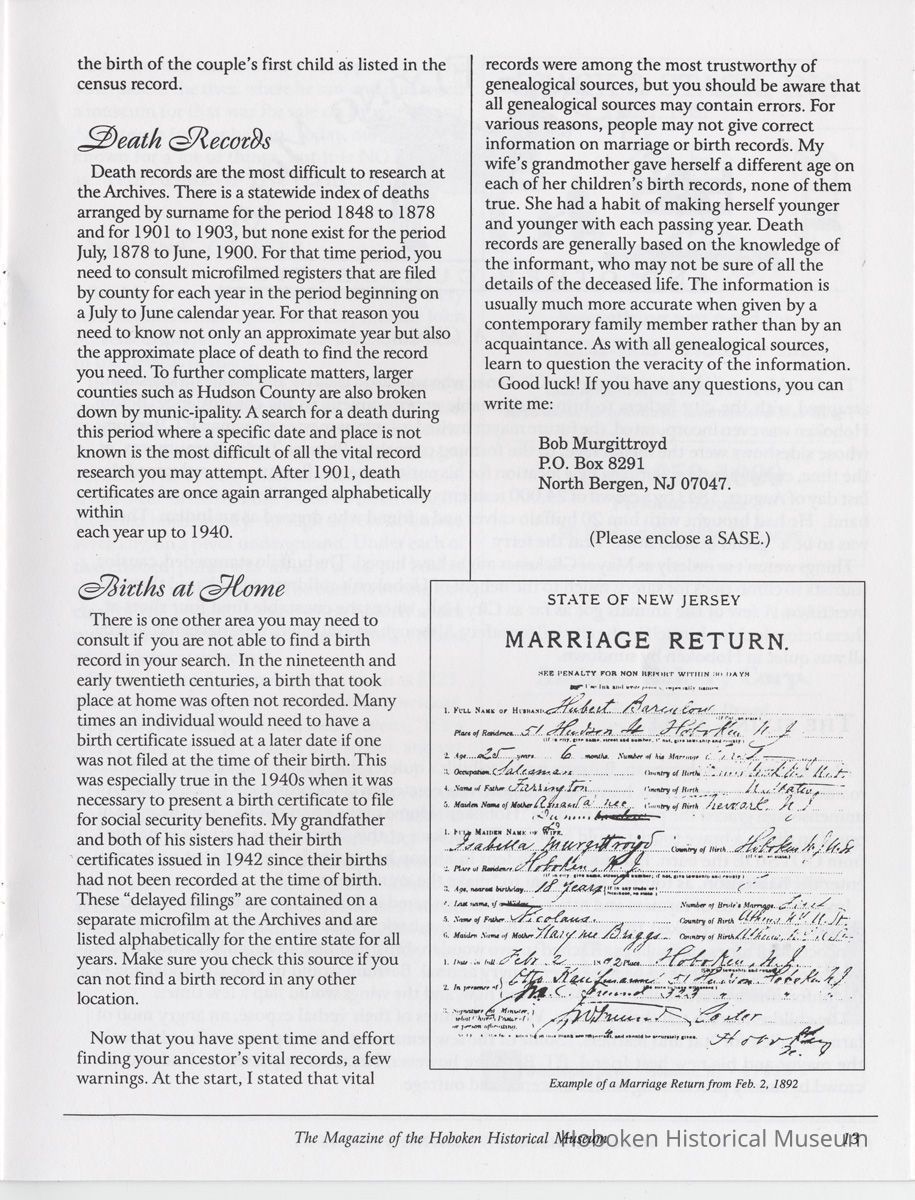 the birth of the couple's first child as listed in the
census record.
Death Records
Death records are the most difficult to research at
the Archives. There is a statewide index of deaths
arranged by surname for the period 1848 to 1878
and for 1901 to 1903, but none exist for the period
July, 1878 to June, 1900. For that time period, you
need to consult microfilmed registers that are filed
by county for each year in the period beginning on
a July to June calendar year. For that reason you
need to know not only an approximate year but also
the approximate place of death to find the record
you need. To further complicate matters, larger
counties such as Hudson County are also broken
down by munic-ipality. A search for a death during
this period where a specific date and place is not
known is the most difficult of all the vital record
research you may attempt. After 1901, death
certificates are once again arranged alphabetically
within
each year up to 1940.
Births at Home
There is one other area you may need to
consult if you are not able to find a birth
record in your search. In the nineteenth and
early twentieth centuries, a birth that took
place at home was often not recorded. Many
times an individual would need to have a
birth certificate issued at a later date if one
was not filed at the time of their birth. This
was especially true in the 1940s when it was
necessary to present a birth certificate to file
for social security benefits. My grandfather
and both of his sisters had their birth
certificates issued in 1942 since their births
had not been recorded at the time of birth.
These "delayed filings" are contained on a
separate microfilm at the Archives and are
listed alphabetically for the entire state for all
years. Make sure you check this source if you
can not find a birth record in any other
location.
Now that you have spent time and effort
finding your ancestor's vital records, a few
warnings. At the start, I stated that vital
records were among the most trustworthy of
genealogical sources, but you should be aware that
all genealogical sources may contain errors. For
various reasons, people may not give correct
information on marriage or birth records. My
wife's grandmother gave herself a different age on
each of her children's birth records, none of them
true. She had a habit of making herself younger
and younger with each passing year. Death
records are generally based on the knowledge of
the informant, who may not be sure of all the
details of the deceased life. The information is
usually much more accurate when given by a
contemporary family member rather than by an
acquaintance. As with all genealogical sources,
learn to question the veracity of the information.
Good luck! If you have any questions, you can
write me:
Bob Murgittroyd
P.O. Box 8291
North Bergen, NJ 07047.
(Please enclose a SASE.)
STATE OF NEW JERSEY
MARRIAGE RETURN.
SEE PENALTY FOR NON REPORT WITHIN 30 DAYS
1. Full Name of Husband Hubert
Place of Residence 51 Hudson St Hoboken N J
2. Age 25 years 6 months. Number of his Marriage
3. Occupation Salesman Country of Birth
4. Name of Father Country of Birth
5. Maiden Name of Mother Amanda nee Country of Birth Newark N J
1. Full Maiden Name of Wife
Isabella Murgittroyd Country of Birth Hoboken N J
2. Place of Residence Hoboken, N. J.
3. Age, nearest birthday 18 Years
4. Last name, if Number of Bride's Marriage First
5. Name of Father Nicolaus Country of Birth
6. Maiden Name of Mother Mary nee Briggs Country of Birth
1. Date Feb. 2 1892 Place Hoboken, N. J.
2. In presence of Otto 51 Hudson Hoboken N J
3. Signature of Minister,
Example of a Marriage Return from Feb. 2, 1892
The Magazine of the Hoboken Historical Museum 13
Hoboken Historical Museum